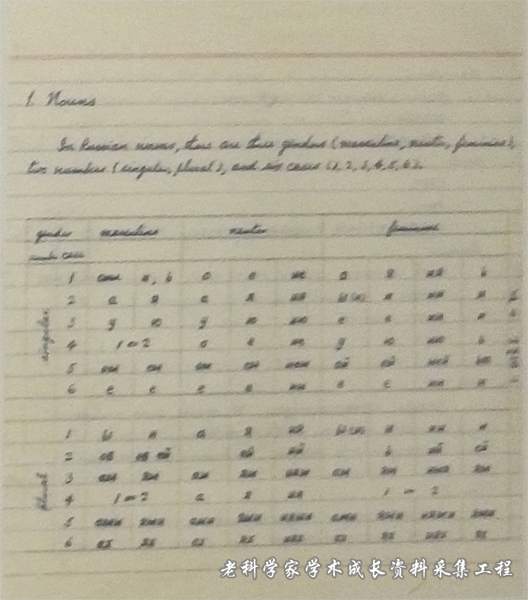 1. Nouns
In Russian nouns, there are three genders (masculine, neuter, feminine),
two numbers (singular, plural), and six cases (1, 2, 3, 4, 5, 6).
gender masculine neuter feminine
number case
singular
1 а, ь о е ие а я ия ь
2 а я а я ия ы(и) и ии и
3 у ю у ю ию е е ии и
4 1 or 2 о е ие у ю ию ь
5 ом ем ом ем ием ой ей ией
6 е е е е ии е е ии и
plural
1 ы и а я ия ы(и) и ии и
2 ов ев ей ей ий ь ий ей
3 ам ям ам ям иям ам ям иям ям
4 1 or 2 а я ия 1 or 2
5 ами ями ами ями иями ами ями иями ями
6 ах ях ах ях иях ах ях иях ях
老科学家学术成长资料采集工程